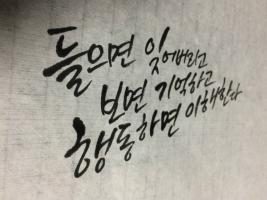 들으면 잊어버리고
보면 기억하고
행동하면 이해한다